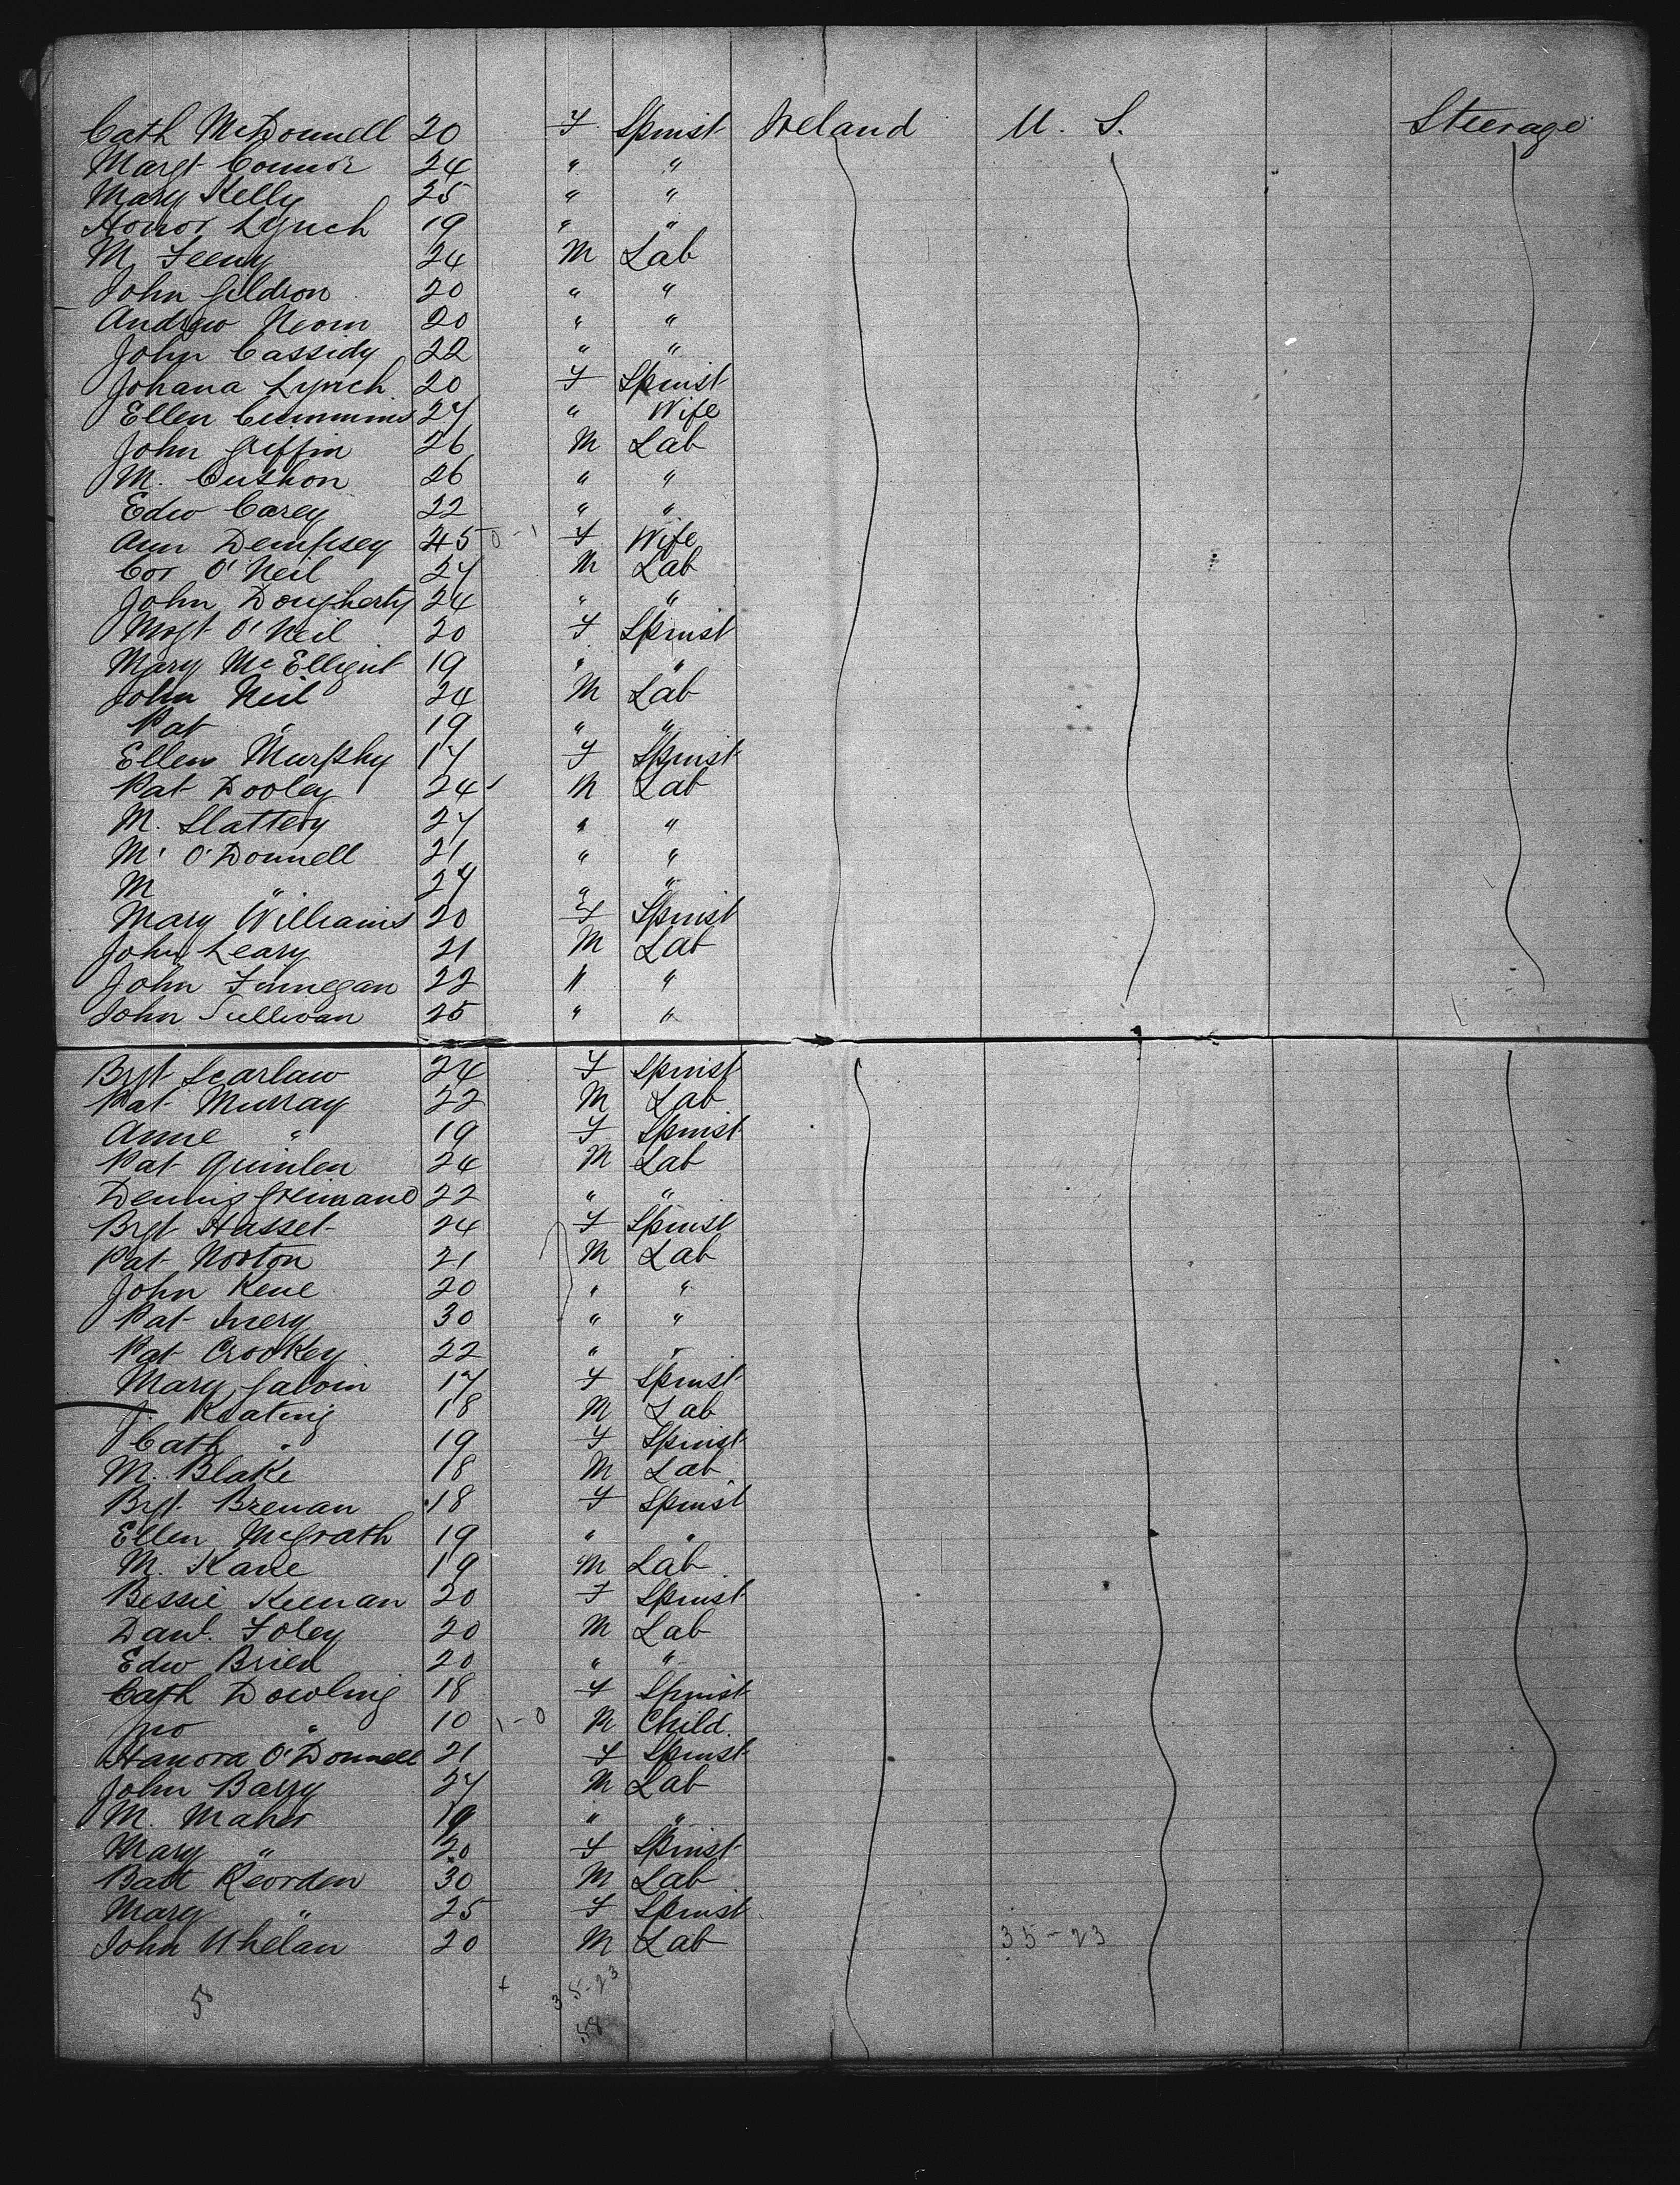 Cath McDonnell 20 F Spinst Ireland U. S. Steerage
Margt Connor 24 " "
Mary Kelly 25 " "
Honor Lynch 19 " "
M Feeny 24 M Lab
John Gildron 20 " "
Andrew 20 " "
John Cassidy 22 " "
Johana Lynch 20 F Spinst
Ellen Cummins 27 " Wife
John Griffin 26 M Lab
M. Cushon 26 " "
Edw Carey 22 " "
Ann Dempsey 45 0-1 F Wife
Cor O'Neil 27 M Lab
John Dougherty 24 " "
Mrgt O'Neil 20 F Spinst
Mary McElligut 19 " "
John Neil 24 M Lab
Pat " 19 " "
Ellen Murphy 17 F Spinst
Pat Dooley 24 M Lab
M. Slattery 27 " "
M. O'Donnell 21 " "
M " 27 " "
Mary Williams 20 F Spinst
John Leary 21 M Lab
John Finnegan 22 " "
John Sullivan 25 " "
Brgt Scarlaw 24 F Spinst
Pat Murray 22 M Lab
Anne " 19 F Spinst
Pat Quinlen 24 M Lab
Dennis 22 " "
Brgt Hasset 24 F Spinst
Pat Norton 21 M Lab
John Kene 20 " "
Pat 30 " "
Pat Crockey 22 " "
Mary Galvin 17 F Spinst
J. Keating 18 M Lab
Cath " 19 F Spinst
M. Blake 18 M Lab
Brgt Brenan 18 F Spinst
Ellen McGrath 19 " "
M. Kane 19 M Lab
Bessie Keenan 20 F Spinst
Danl. Foley 20 M Lab
Edw Brien 20 " "
Cath Dowling 18 F Spinst
Jno " 10 1-0 M Child
Hanora O'Donnell 21 F Spinst
John Barry 27 M Lab
M. Maher 19 " "
Mary " 20 F Spinst
Batt Reorden 30 M Lab
Mary " 25 F Spinst
John Whelan 20 M Lab 35-23
58 35-23
58